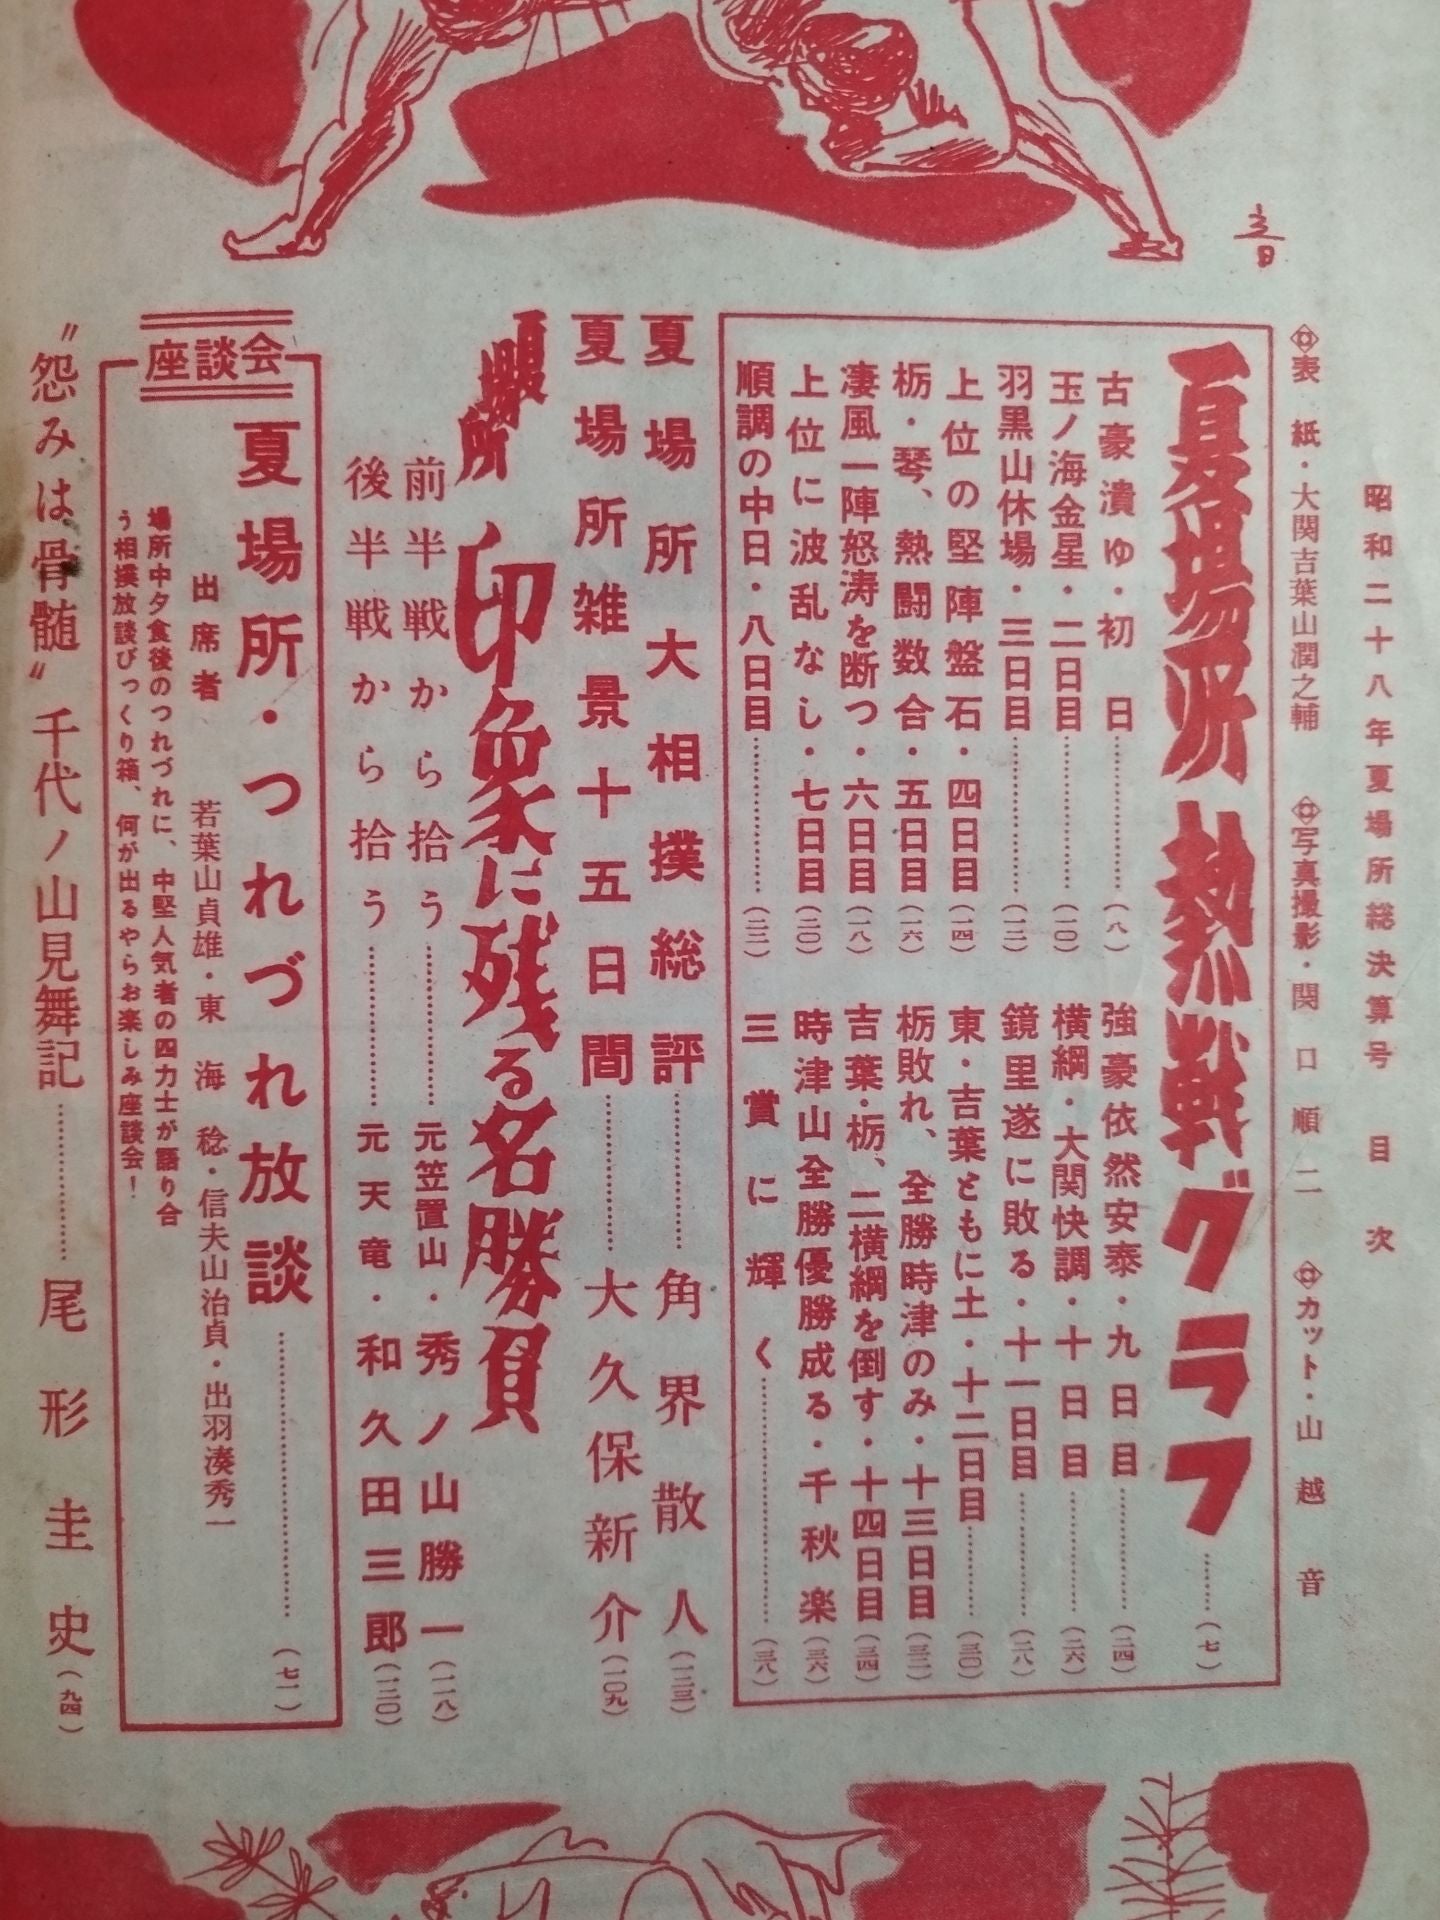 昭和二十八年夏場所総決算号 目次
表紙・大関吉葉山潤之輔 写真撮影・関口順二 カット・山越音
夏場所熱戦グラフ……(七)
古豪潰ゆ・初日……(八)
玉ノ海金星・二日目……(一〇)
羽黒山休場・三日目……(一二)
上位の堅陣盤石・四日目……(一四)
栃・琴、熱闘数合・五日目……(一六)
凄風一陣怒涛を断つ・六日目……(一八)
上位に波乱なし・七日目……(二〇)
順調の中日・八日目……(二二)
強豪依然安泰・九日目……(二四)
横綱・大関快調・十日目……(二六)
鏡里遂に敗る・十一日目……(二八)
東・吉葉ともに土・十二日目……(三〇)
栃敗れ、全勝時津のみ・十三日目……(三二)
吉葉・栃、二横綱を倒す・十四日目……(三四)
時津山全勝優勝成る・千秋楽……(三六)
三賞に輝く……(三八)
夏場所大相撲総評……角界散人(一二三)
夏場所雑景十五日間……大久保新介(一〇九)
夏場所 印象に残る名勝負
前半戦から拾う……元笠置山・秀ノ山勝一(一一八)
後半戦から拾う……元天竜・和久田三郎(一二〇)
座談会
夏場所・つれづれ放談……(七一)
出席者 若葉山貞雄・東海稔・信夫山治貞・出羽湊秀一
場所中夕食後のつれづれに、中堅人気者の四力士が語り合
う相撲放談びっくり箱、何が出るやらお楽しみ座談会！
〝怨みは骨髄〟千代ノ山見舞記……尾形圭史(九四)